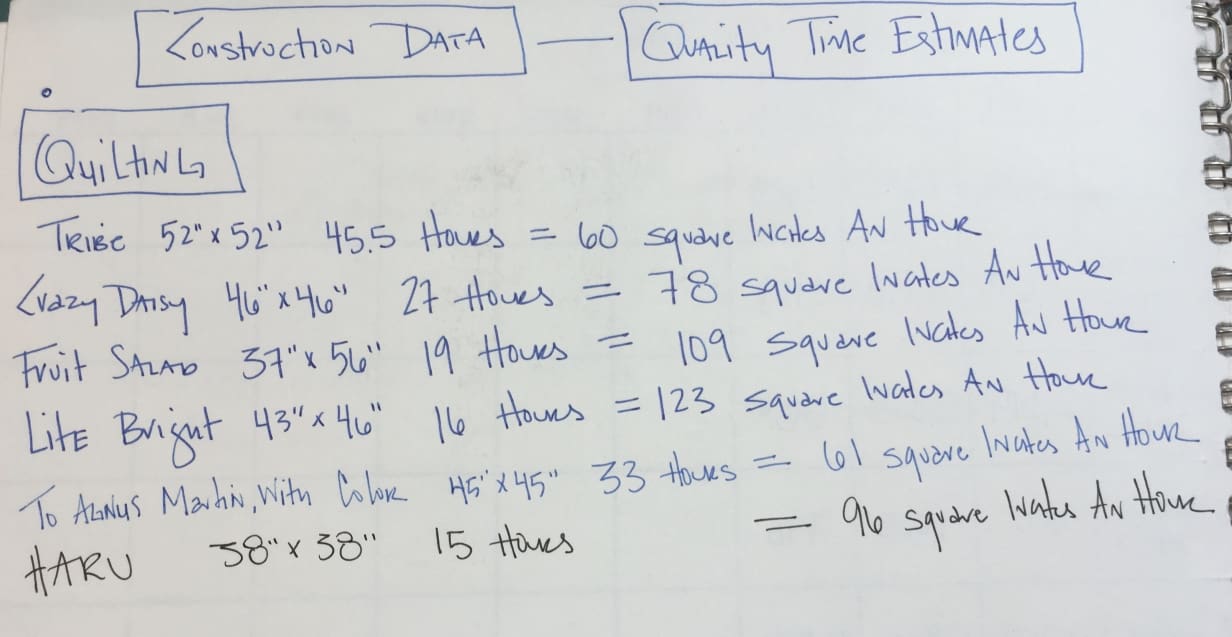 Construction Data — Quality Time Estimates
Quilting
Tribe 52" x 52" 45.5 Hours = 60 square Inches An Hour
Crazy Daisy 46" x 46" 27 Hours = 78 square Inches An Hour
Fruit Salad 37" x 56" 19 Hours = 109 square Inches An Hour
Lite Bright 43" x 46" 16 Hours = 123 square Inches An Hour
To Agnus Martin, With Color 45" x 45" 33 Hours = 61 square Inches An Hour
HARU 38" x 38" 15 Hours = 96 square Inches An Hour